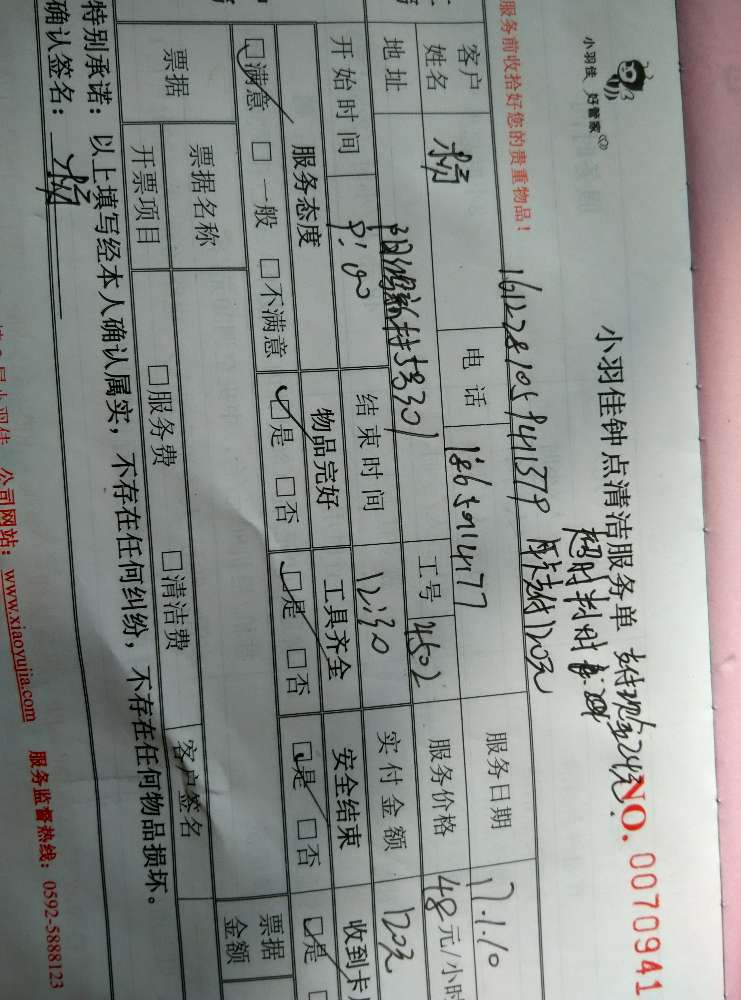 小羽佳 好管家
小羽佳钟点清洁服务单
NO. 0070941
超时半时
服务前收拾好您的贵重物品!
1611278105941379
支付120元
客户姓名 杨 电话 工号 4502 服务日期 17.1.10
地址 服务价格 48元/小时
开始时间 9:00 结束时间 12:30 实付金额 120元
服务态度 物品完好 工具齐全 安全结束 收到卡
☑满意 □一般 □不满意 ☑是 □否 ☑是 □否 ☑是 □否 ☑是
票据 票据名称 □服务费 □清洁费 客户签名 票据金额
开票项目
特别承诺:以上填写经本人确认属实,不存在任何纠纷,不存在任何物品损坏。
确认签名: 杨
公司网站:www.xiaoyujia.com 服务监督热线:0592-5888123